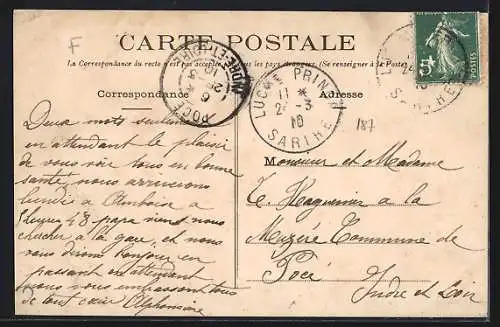 F
CARTE POSTALE
La Correspondance du recto n'est pas acceptée tous les pays étrangers. (Se renseigner à la Poste)
Correspondance
Adresse
POCÉ
6
10
INDRE-ET-LOIRE
LUCHÉ PRIN
11 *
2 -3
10
SARTHE
SARTHE
187
Deux mots seulement
en attendant le plaisir
de vous voir tous en bonne
santé, nous arriverons
lundi à Amboise à
4 8 papa viens nous
chercher à la gare, et nous
vous dirons bonjour en
passant en attendant
nous vous embrassons tous
de tout cœur Alphonsine
Monsieur et Madame
à la
Commune de
Pocé
Indre et Loir